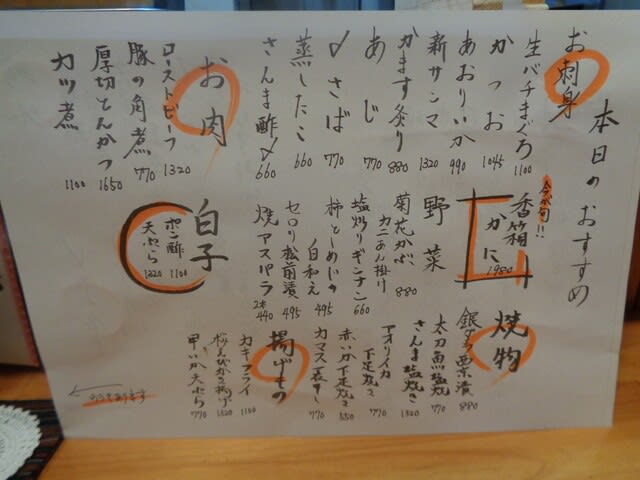 本日のおすすめ
お刺身
生バチまぐろ 1100
かつお 1045
あおりいか 990
新サンマ 1320
かます炙り 880
あじ 770
〆さば 770
蒸しだこ 660
さんま酢〆 660
お肉
ローストビーフ 1320
豚の角煮 770
厚切とんかつ 1650
カツ煮 1100
今が旬!!
香箱かに 1980
野菜
菊花かぶカニあん掛け 880
塩炒りギンナン 660
柿としめじの白和え 495
セロリ松前漬 495
焼アスパラ 2本 440
白子
ポン酢 1100
天ぷら 1320
焼物
銀ダラ粟漬 880
太刀魚塩焼 770
さんま塩焼き 1320
アオリイカ下足焼き 770
赤いか下足焼き 550
カマス 770
揚げもの
カキフライ 1100
桜えびかき揚げ 1320
甲いか天ぷら 770